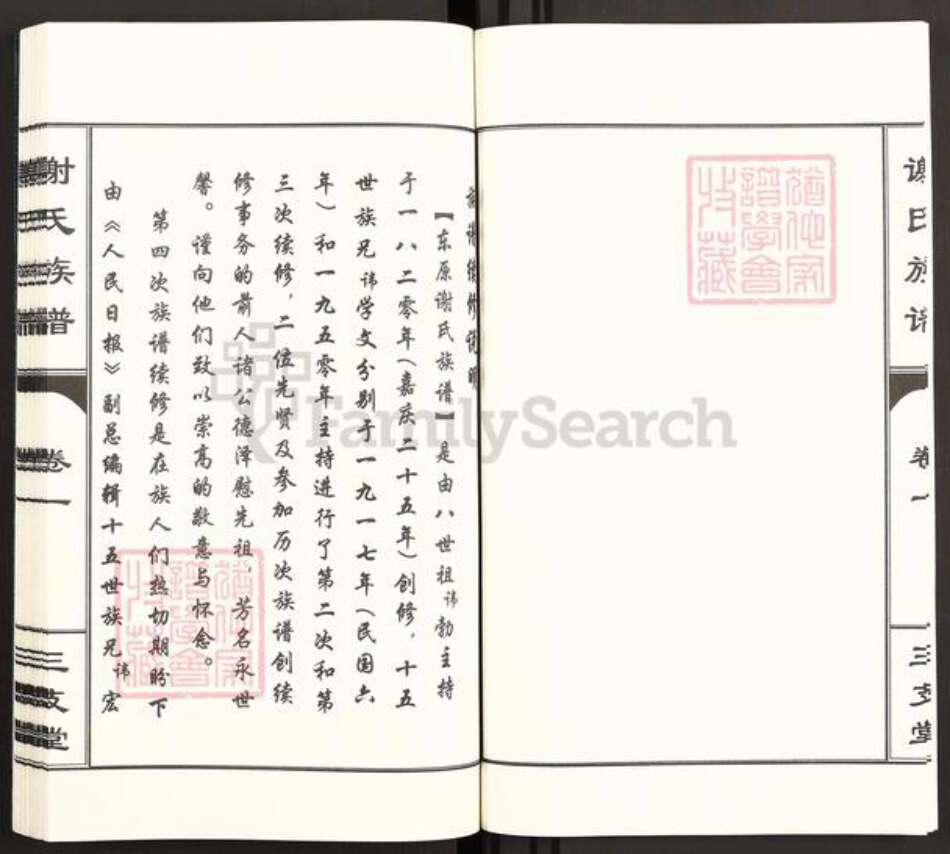 谢氏族谱
卷一
三支堂
【东原谢氏族谱】是由八世祖讳勃主持
于一八二零年(嘉庆二十五年)创修,十五
世族兄讳学文分别于一九一七年(民国六
年)和一九五零年主持进行了第二次和第
三次续修,二位先贤及参加历次族谱创续
修事务的前人诸公德泽慰先祖,芳名永世
馨。谨向他们致以崇高的敬意与怀念。
第四次族谱续修是在族人们热切期盼下
由《人民日报》副总编辑十五世族兄讳宏
谢氏族谱
卷一
三支堂
FamilySearch